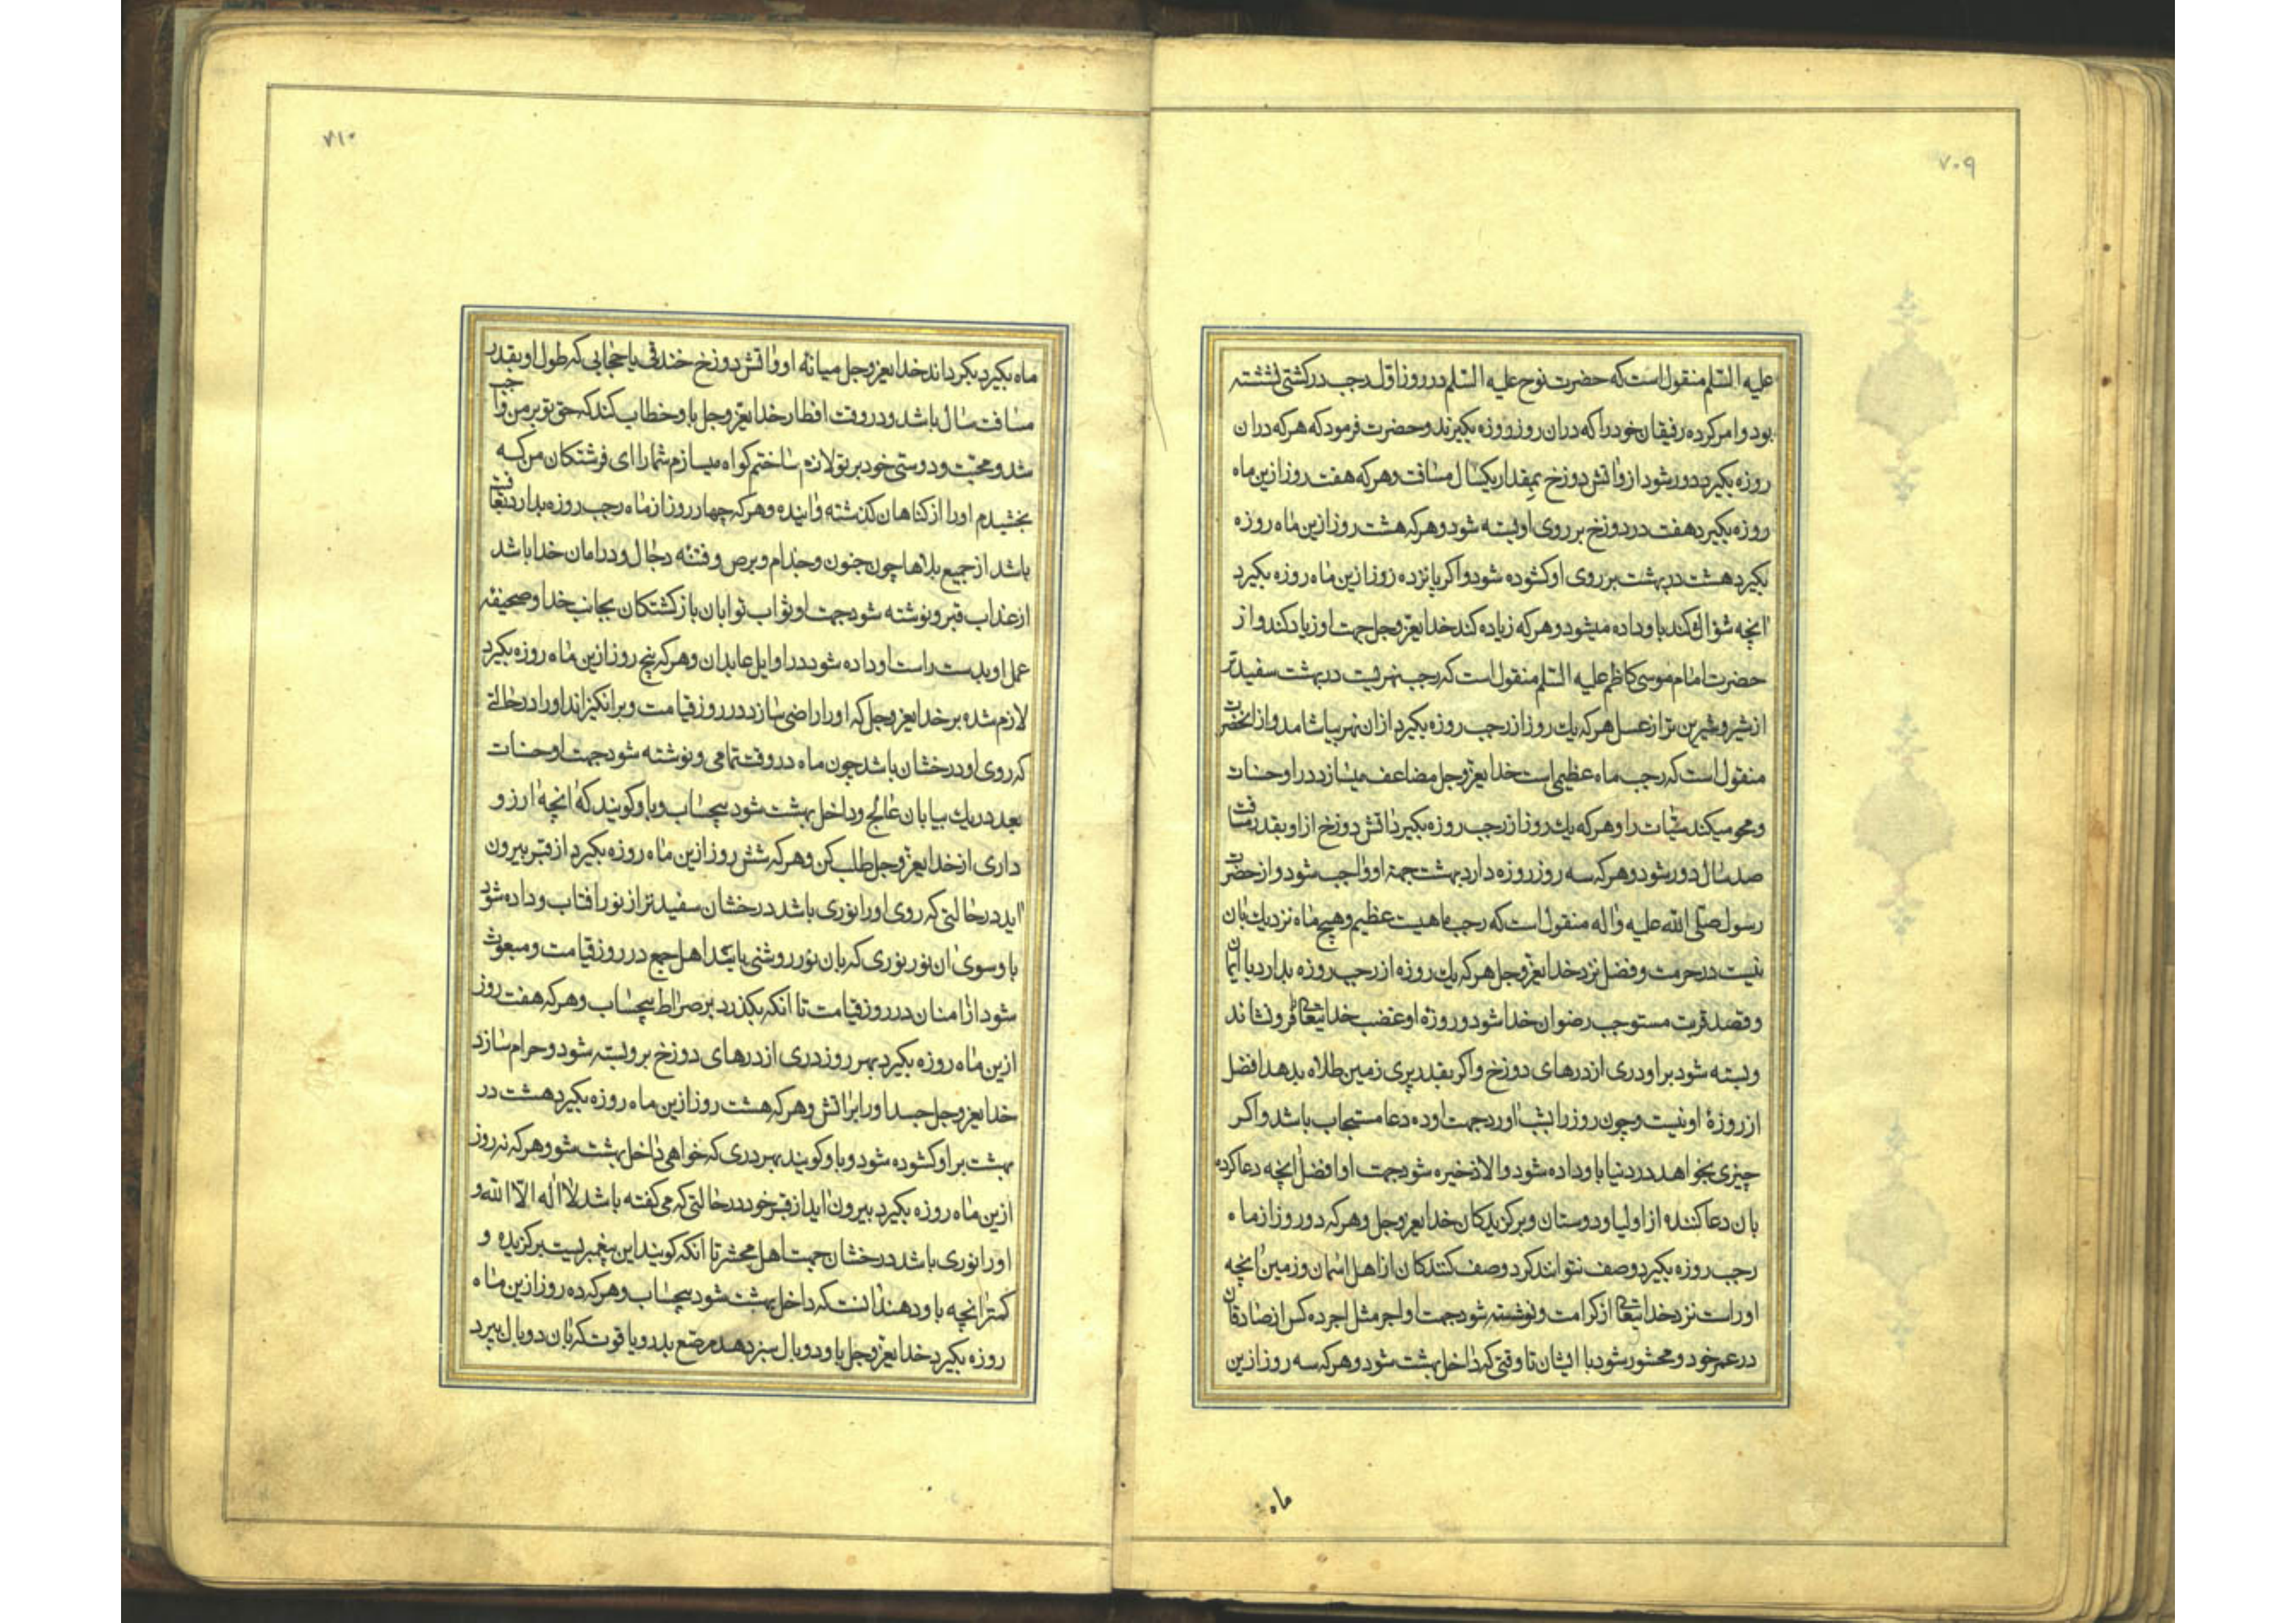 ۷۰۹
علیه السّلم منقول است که حضرت نوح علیه السّلم در روز اوّل رجب در کشتی نشسته
بود و امر کرده رفیقان خود را که در ان روز روزه بکیرند و حضرت فرمود که هر که در ان
روزه بکیرد دور شود از و اتش دوزخ بمقدار یکسال مسافت و هر که هفت روز ازین ماه
روزه بکیرد هفت در دوزخ بر روی او بسته شود و هر که هشت روز ازین ماه روزه
بکیرد هشت در بهشت بر روی او کشوده شود و اکر پانزده روز ازین ماه روزه بکیرد
انچه سؤال کند باو داده میشود و هر که زیاده کند خدایعزّوجل جهت او زیاد کند و از
حضرت امام موسی کاظم علیه السّلم منقول است که رجب نهریست در بهشت سفیدتر
از شیر و شیرین تر از عسل هر که یك روز از رجب روزه بکیرد از ان نهر بیاشامد و از انحضرت
منقول است که رجب ماه عظیمی است خدایعزّوجل مضاعف میسازد در او حسنات
و محو میکند سیّات را و هر که یك روز از رجب روزه بکیرد اتش دوزخ از او بقدر مسافت
صد سال دور شود و هر که سه روز روزه دارد بهشت جهة او واجب شود و از حضرت
رسول صلّی الله علیه و اله منقول است که رجب ماهیست عظیم و هیچ ماه نزدیك بان
نیست در حرمت و فضل نزد خدایعزّوجل هر که یك روزه از رجب روزه بدارد با ایمان
و قصد قربت مستوجب رضوان خدا شود و روزۀ او غضب خدایتعالی فرو نشاند
و بسته شود بر او دری از درهای دوزخ و اکر بقدر پری زمین طلاه بدهد افضل
از روزۀ او نیست و چون روز را بشب اورد جهت او ده دعا مستجاب باشد و اکر
چیزی بخواهد در دنیا باو داده شود و الا ذخیره شود جهت او افضل انچه دعا کرده
بان دعا کننده از اولیا و دوستان و برکزیدکان خدایعزّوجل و هر که دو روز از ماه
رجب روزه بکیرد وصف نتوانند کرد وصف کنندکان از اهل اسمان و زمین انچه
او راست نزد خدایتعالی از کرامت و نوشته شود جهت او اجر مثل اجر ده کس از صادقان
در عمر خود و محشور شود با ایشان تا وقتی که داخل بهشت شود و هر که سه روز ازین
ماه
۷۱۰
ماه بکیرد بکرداند خدایعزّوجل میانۀ او و اتش دوزخ خندقی یا حجابی که طول او بقدر
مسافت سال باشد و در وقت افطار خدایعزّوجل باو خطاب کند که حق تو بر من واجب
شد و محبّت و دوستی خود بر تو لازم ساختم کواه میسازم شما را ای فرشتکان من که
بخشیدم او را از کناهان کذشته و اینده و هر که چهار روز از ماه رجب روزه بدارد در عافیت
باشد از جمیع بلاها چون جنون و جذام و برص و فتنۀ دجّال و در امان خدا باشد
از عذاب قبر و نوشته شود جهت او ثواب توابان بازکشتکان بجانب خدا و صحیفۀ
عمل او بدست راست او داده شود در اوایل عابدان و هر که پنج روز ازین ماه روزه بکیرد
لازم شده بر خدایعزّوجل که او را راضی سازد در روز قیامت و برانکیزاند او را در حالتی
که روی او درخشان باشد چون ماه در وقت تمامی و نوشته شود جهت او حسنات
بعدد ریك بیابان عالج و داخل بهشت شود بیحساب و باو کویند که انچه ارزو
داری از خدایعزّوجل طلب کن و هر که شش روز ازین ماه روزه بکیرد از قبر بیرون
اید در حالتی که روی او را نوری باشد درخشان سفیدتر از نور افتاب و داده شود
باو سوی ان نور نوری که بان نور روشنی یابند اهل جمع در روز قیامت و مبعوث
شود از امنان در روز قیامت تا انکه بکذرد بر صراط بیحساب و هر که هفت روز
ازین ماه روزه بکیرد بهر روز دری از درهای دوزخ بر و بسته شود و حرام سازد
خدایعزّوجل جسد او را بر اتش و هر که هشت روز ازین ماه روزه بکیرد هشت در
بهشت بر او کشوده شود و باو کویند بهر دری که خواهی داخل بهشت شو و هر که نه روز
ازین ماه روزه بکیرد بیرون اید از قبر خود در حالتی که می کفته باشد لا اله الّا الله و
او را نوری باشد درخشان جهت اهل محشر تا انکه کویند این پیغمبریست برکزیده و
کمتر انچه باو دهند انست که داخل بهشت شود بیحساب و هر که ده روز ازین ماه
روزه بکیرد خدایعزّوجل باو دو بال سبز دهد مرصّع بدر و یاقوت که بان دو بال بپرد